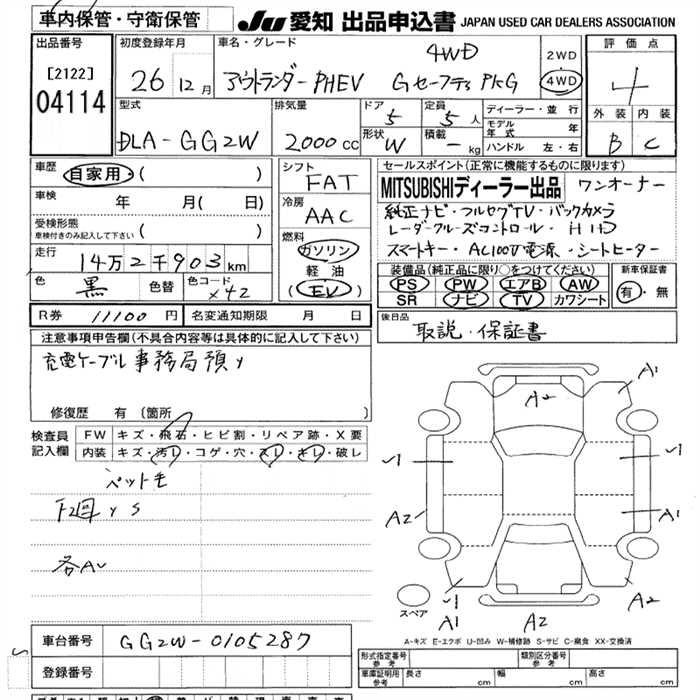 車内保管・守衛保管
JU 愛知 出品申込書 JAPAN USED CAR DEALERS ASSOCIATION
出品番号
[2122]
04114
初度登録年月
26 12月
車名・グレード
4WD
アウトランダーPHEV Gセーフティ PKG
2WD
4WD
評価点
4
外装 内装
B C
型式
DLA-GG2W
排気量
2000cc
ドア
5
定員
5人
形状
W
積載
- kg
ディーラー・並行
モデル年式 年
ハンドル 左・右
車歴
自家用・( )
車検 年 月( 日)
受検形態
車検付きのみ記入して下さい ( )
走行 14万2千903km
色 黒 色替 色コード X42
シフト
FAT
冷房
AAC
燃料
ガソリン
軽油
(EV)
セールスポイント(正常に機能するものに限ります)
MITSUBISHIディーラー出品 ワンオーナー
純正ナビ・フルセグTV・バックカメラ
レーダークルーズコントロール・HID
スマートキー・AC100V電源・シートヒーター
装備品(純正品に限り○をつけてください)
PS PW エアB AW
SR ナビ TV カワシート
新車保証書
有・無
R券 11100円 名変通知期限 月 日
後日品
取説・保証書
注意事項申告欄(不具合内容等は具体的に記入して下さい)
充電ケーブル事務局預り
修復歴 有 〔箇所 〕
検査員記入欄
FW キズ・飛石・ヒビ割・リペア跡・X要
内装 キズ・汚レ・コゲ・穴・スレ・キレ・破レ
ペット毛
各AU
A1
A2
A2
A1
A1
A2
A2
スペア
A-キズ E-エクボ U-凹み W-補修跡 S-サビ C-腐食 XX-交換済
車台番号 GG2W-0105287
登録番号
形式指定番号 参考
類別区分番号 参考
車庫証明用 参考 長さ cm 幅 cm 高さ cm